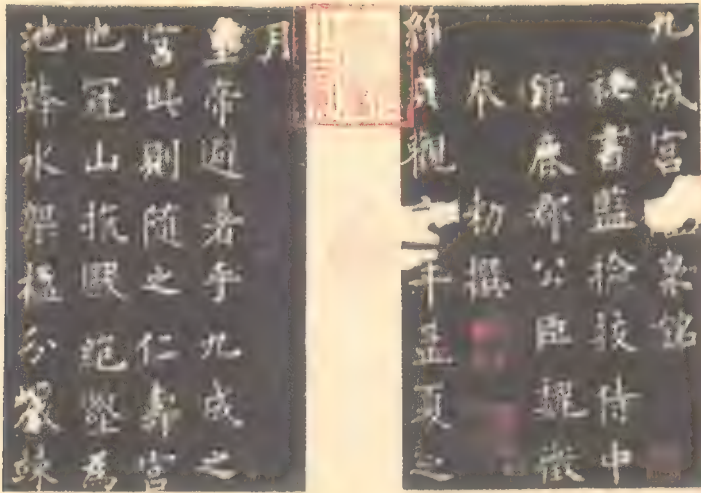 九成宮泉銘
祕書監撿挍侍中
鉅鹿郡公臣魏徵
奉勑撰
維貞觀六年孟夏之
月
皇帝避暑乎九成之
宮此則隨之仁壽宮
也冠山抗殿絕壑為
池跨水架楹分巖竦